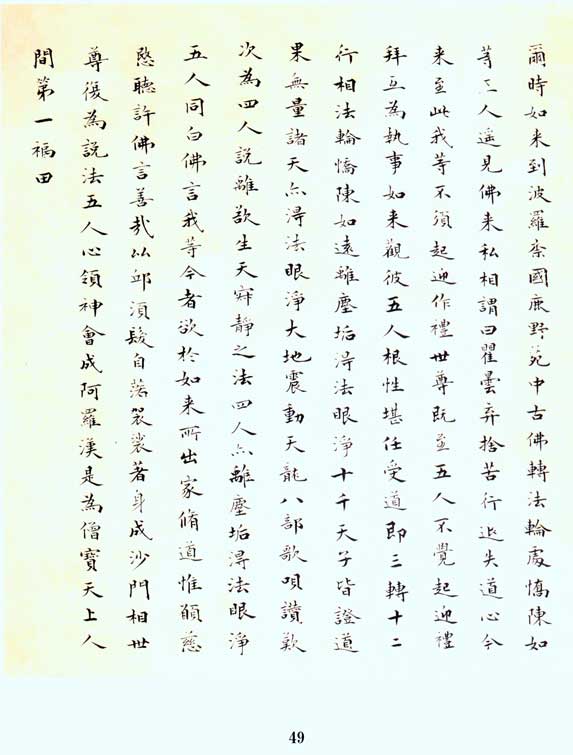 爾時如来到波羅柰國鹿野苑中古佛轉法輪處憍陳如
等五人遥見佛来私相謂曰瞿曇弃捨苦行退失道心今
来至此我等不須起迎作禮世尊既至五人不覺起迎禮
拜互為執事如来觀彼五人根性堪任受道即三轉十二
行相法輪憍陳如遠離塵垢淂法眼淨十千天子皆證道
果無量諸天亦淂法眼淨大地震動天龍八部歌唄讚歎
次為四人說離欲生天寂静之法四人亦離塵垢淂法眼淨
五人同白佛言我等今者欲於如来所出家脩道惟願慈
愍聽許佛言善哉以即湏髮自落袈裟著身成沙門相世
尊復為說法五人心領神會成阿羅漢是為僧寶天上人
間第一福田
49